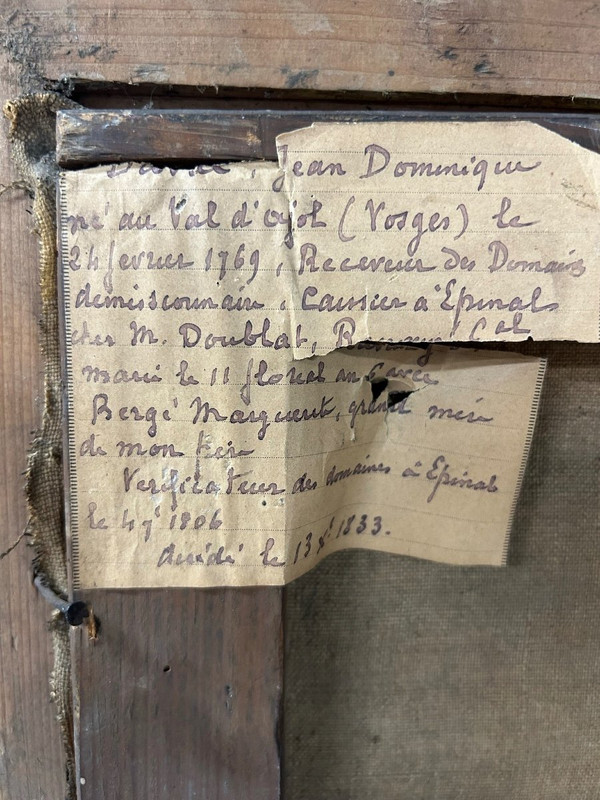 Jean Dominique
né au Val d'Ajol (Vosges) le
24 fevrier 1769, Receveur des Domaines
demissionnaire. Caissier à Epinal
chez M. Doublat, Gal
marié le 11 floreal an avec
Bergé Marguerite, grand mère
de mon père
Verificateur des domaines à Epinal
le 4 1806
décédé le 13 Xbre 1833.